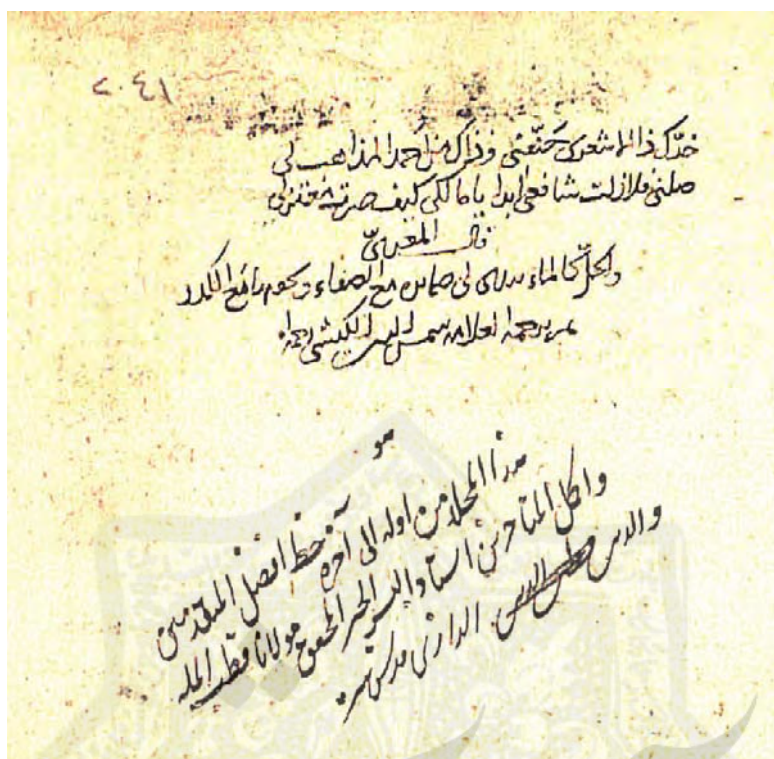 ٢٠٤١
خدّك ذا الاشعرى حنّفنى وذاك من احمد المذاهب لى
صلنى فلازلت شافعى ابدا يا مالكى كيف صرت معتزلى
قال المعرىّ
والخلّ كالماء يبدى لى ضمائره مع الصفاء ويخفيها مع الكدر
العلامه شمس الدين الكيشى رحمه
هو
هذا المجلد من اوله الى آخره خط افضل المتقدمين
واكمل المتاخرين استاد البشر الحبر المحقق مولانا قطب المله
والدين الرازى قدس سره